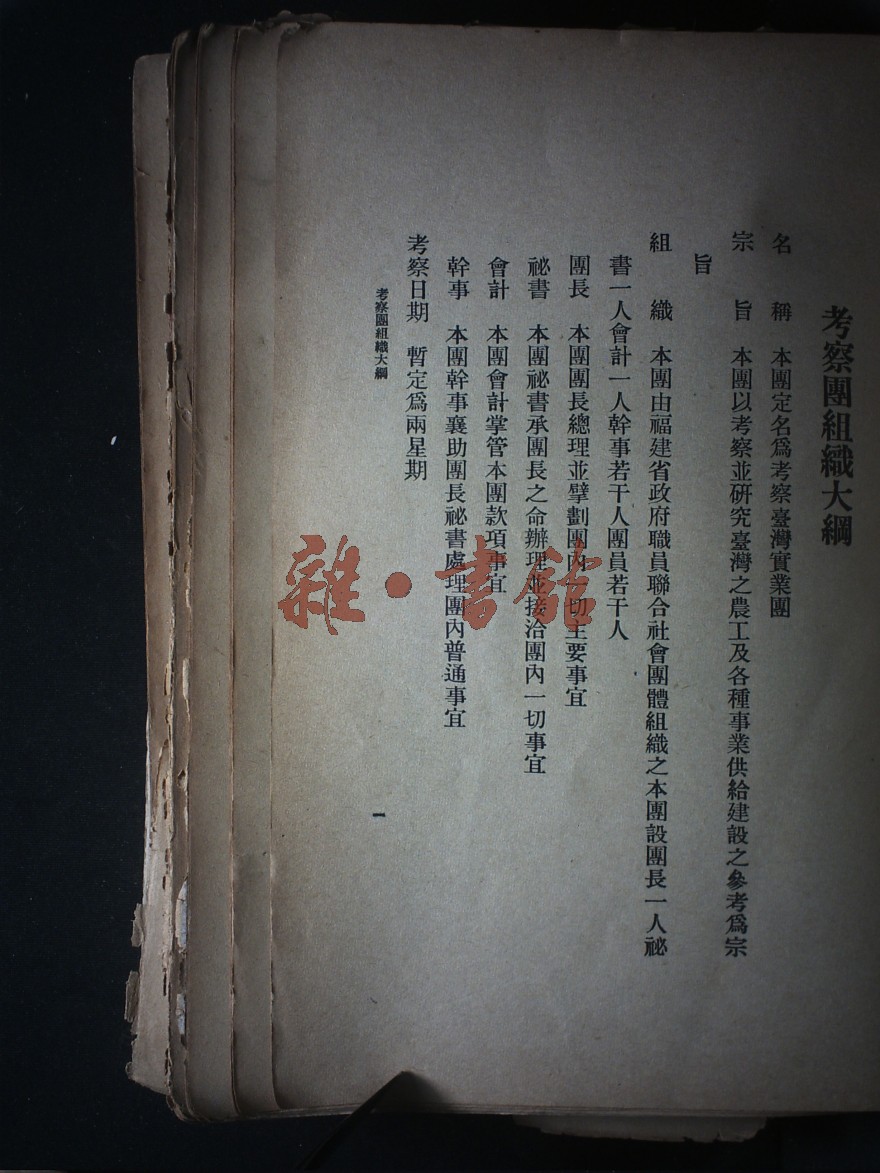 考察團組織大綱
名　稱　本團定名爲考察臺灣實業團
宗　旨　本團以考察並研究臺灣之農工及各種事業供給建設之參考爲宗
旨
組　織　本團由福建省政府職員聯合社會團體組織之本團設團長一人祕
書一人會計一人幹事若干人團員若干人
團長　本團團長總理並擘劃團內一切主要事宜
祕書　本團祕書承團長之命辦理並接洽團內一切事宜
會計　本團會計掌管本團款項事宜
幹事　本團幹事襄助團長祕書處理團內普通事宜
考察日期　暫定爲兩星期
考察團組織大綱
一
雜·書館